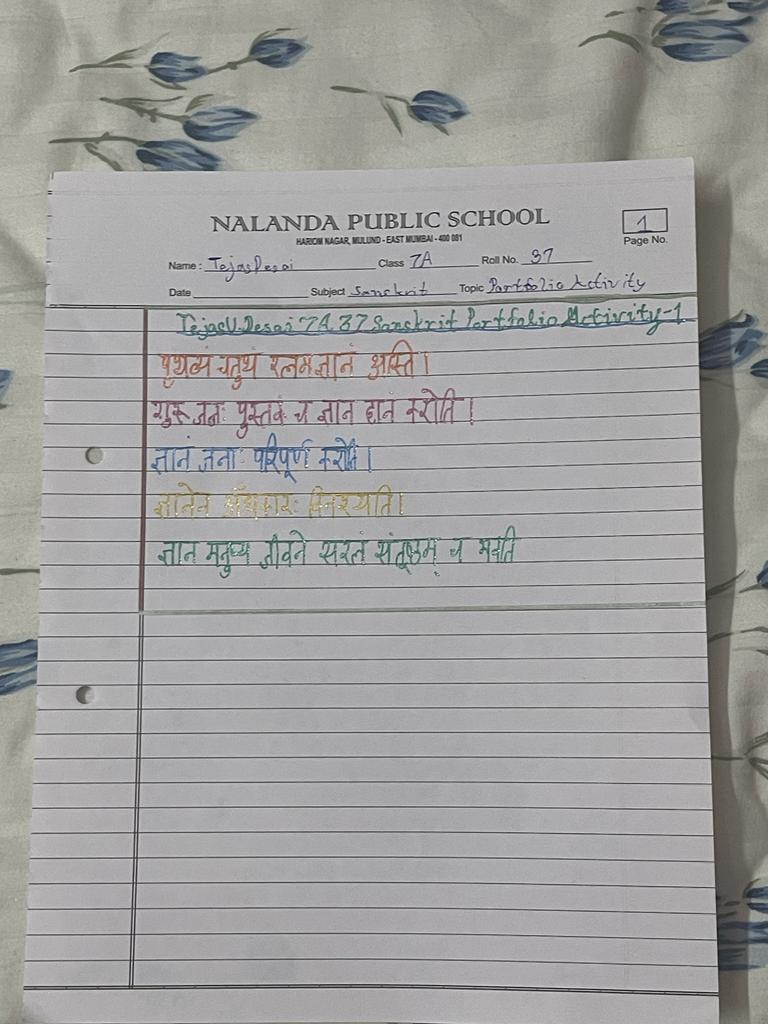 NALANDA PUBLIC SCHOOL
HARIOM NAGAR, MULUND - EAST MUMBAI - 400 081
1
Page No.
Name: Tejas Desai Class 7A Roll No. 37
Date Subject Sanskrit Topic Portfolio Activity
Tejas U Desai 7A 37 Sanskrit Portfolio Activity-1
पृथव्यं चतुर्थं रत्नम ज्ञानं अस्ति।
गुरू जनः पुस्तकं च ज्ञान दानं करोति।
ज्ञानं जनाः परिपूर्ण करोति।
ज्ञानेन अँधकारः विनश्यति।
ज्ञान मनुष्य जीवने सरलं संतूष्ठम् च भवति